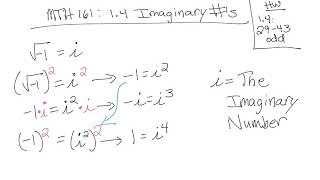 MTH 161: 1.4 Imaginary #'s
HW
1.4:
29-43
odd
√-1 = i
(√-1)² = i² → -1 = i²
-1·i = i²·i → -i = i³
(-1)² = (i²)² → 1 = i⁴
i = The
Imaginary
Number